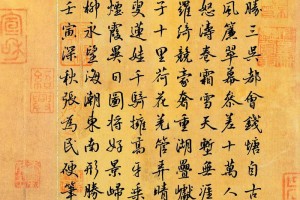 勝三吳都會錢塘自古
風簾翠幕參差十萬人
怒濤卷霜雪天塹無涯
羅綺競豪奢重湖疊巘
子十里荷花羌管弄晴
叟蓮娃千騎擁高牙乘
煙霞異日圖將好景歸
柳永望海潮東南形勝
壬寅深秋張為民硬筆